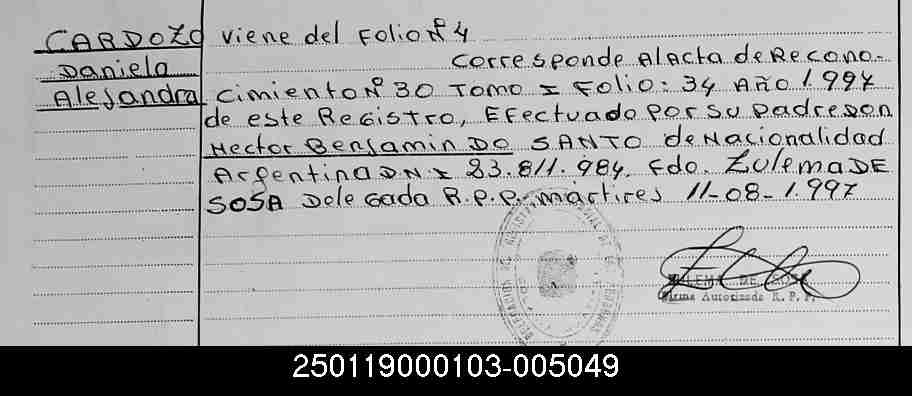 CARDOZO viene del Folio Nº 4
Daniela corresponde Al Acta de Recono-
Alejandra cimiento Nº 30 Tomo I Folio: 34 Año 1.997
de este Registro, Efectuado Por su padre Don
Hector Benjamin DO SANTO de Nacionalidad
Argentina DNI 23.811.984. Fdo. Zulema DE
SOSA Delegada R.P.P. Mártires 11-08-1.997
ZULEMA DE SOSA
Firma Autorizada R. P. P.
250119000103-005049